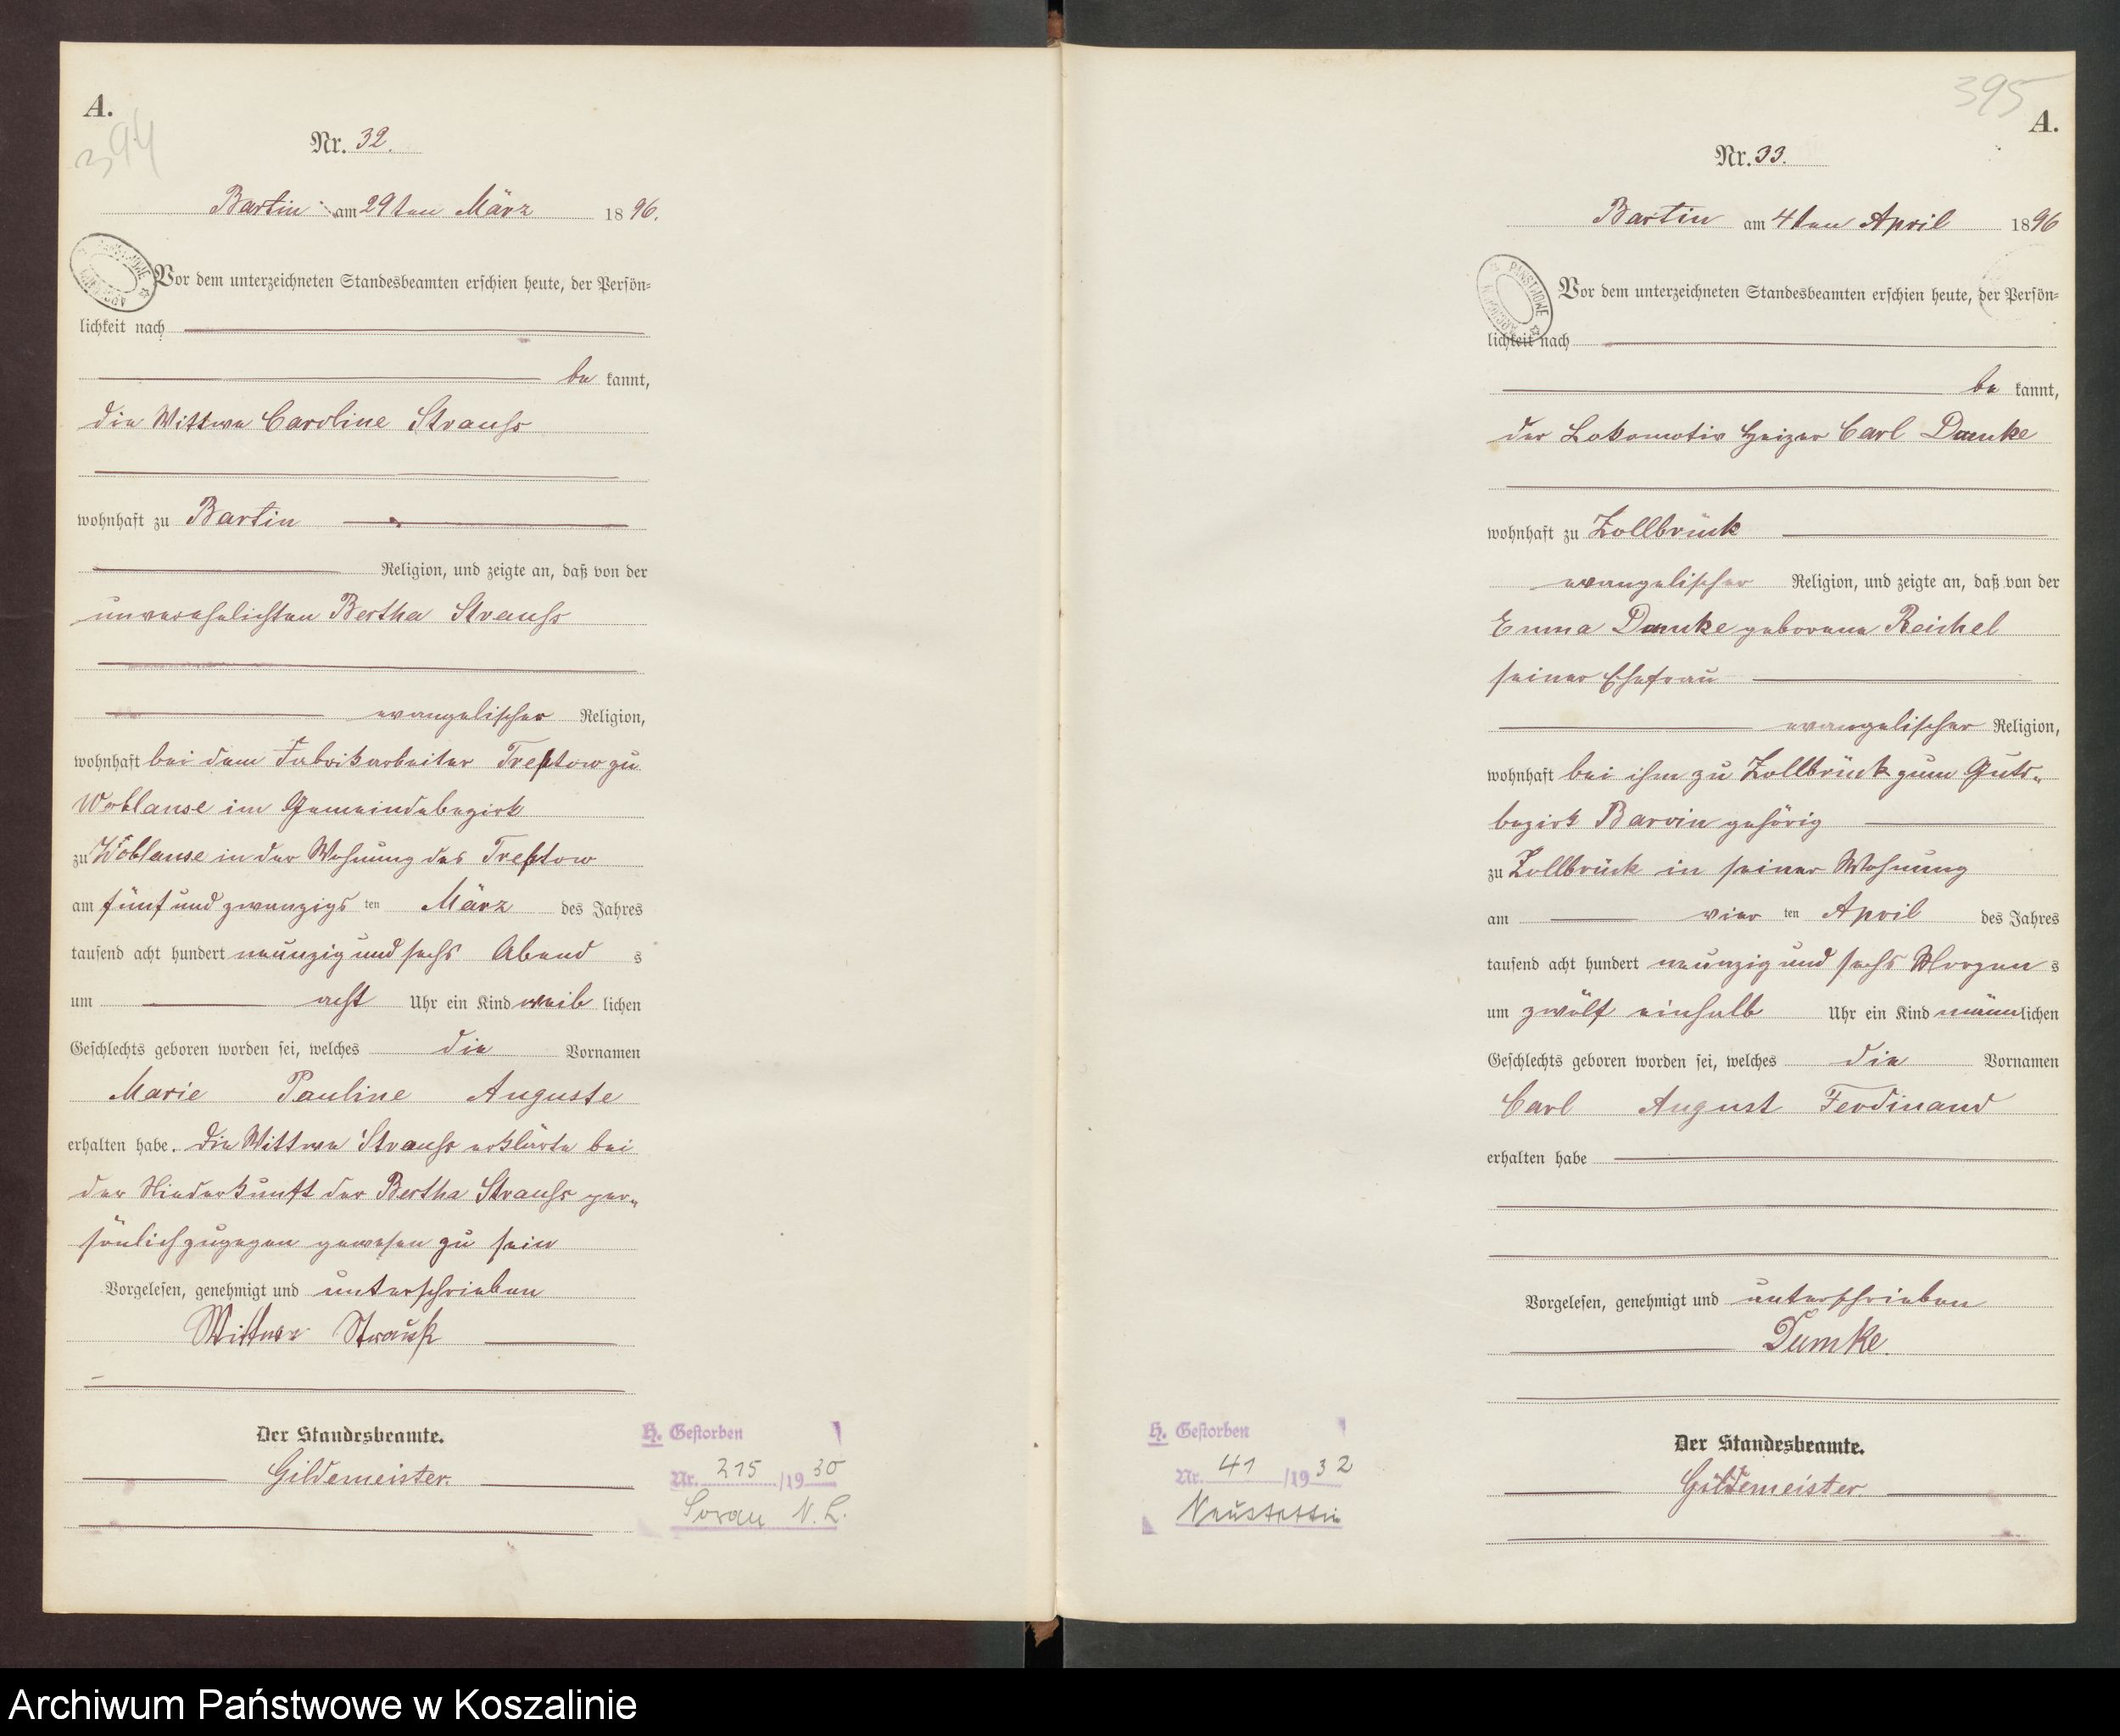 A.
394
Nr. 32.
Bartin am 29ten März 1896.
Vor dem unterzeichneten Standesbeamten erschien heute, der Persön=
lichkeit nach
be kannt,
die Wittwe Caroline Strauss
wohnhaft zu Bartin
Religion, und zeigte an, daß von der
unverehelichten Bertha Strauss
evangelischer Religion,
wohnhaft bei dem Fabrikarbeiter Treptow zu
Woblanse im Gemeindebezirk
zu Woblanse in der Wohnung des Treptow
am fünf und zwanzigs ten März des Jahres
tausend acht hundert neunzig und sechs Abend s
um acht Uhr ein Kind weib lichen
Geschlechts geboren worden sei, welches die Vornamen
Marie Pauline Auguste
erhalten habe. Die Wittwe Strauss erklärte bei
der Niederkunft der Bertha Strauss per=
sönlich zugegen gewesen zu sein
Vorgelesen, genehmigt und unterschrieben
Wittwe Strauß
Der Standesbeamte.
Gildemeister.
H. Gestorben
Nr. 215 /1930
Sorau N. L.
395
A.
Nr. 33.
Bartin am 4ten April 1896
PAŃSTWOWE
Vor dem unterzeichneten Standesbeamten erschien heute, der Persön=
lichkeit nach
be kannt,
der Lokomotiv Heizer Carl Dumke
wohnhaft zu Zollbrück
evangelischer Religion, und zeigte an, daß von der
Emma Dumke geborene Reichel
seiner Ehefrau
evangelischer Religion,
wohnhaft bei ihm zu Zollbrück zum Guts=
bezirk Barvin gehörig
zu Zollbrück in seiner Wohnung
am vier ten April des Jahres
tausend acht hundert neunzig und sechs Morgen s
um zwölf einhalb Uhr ein Kind männlichen
Geschlechts geboren worden sei, welches die Vornamen
Carl August Ferdinand
erhalten habe
Vorgelesen, genehmigt und unterschrieben
Dumke.
Der Standesbeamte.
Gildemeister
H. Gestorben
Nr. 41 /1932
Neustettin
Archiwum Państwowe w Koszalinie